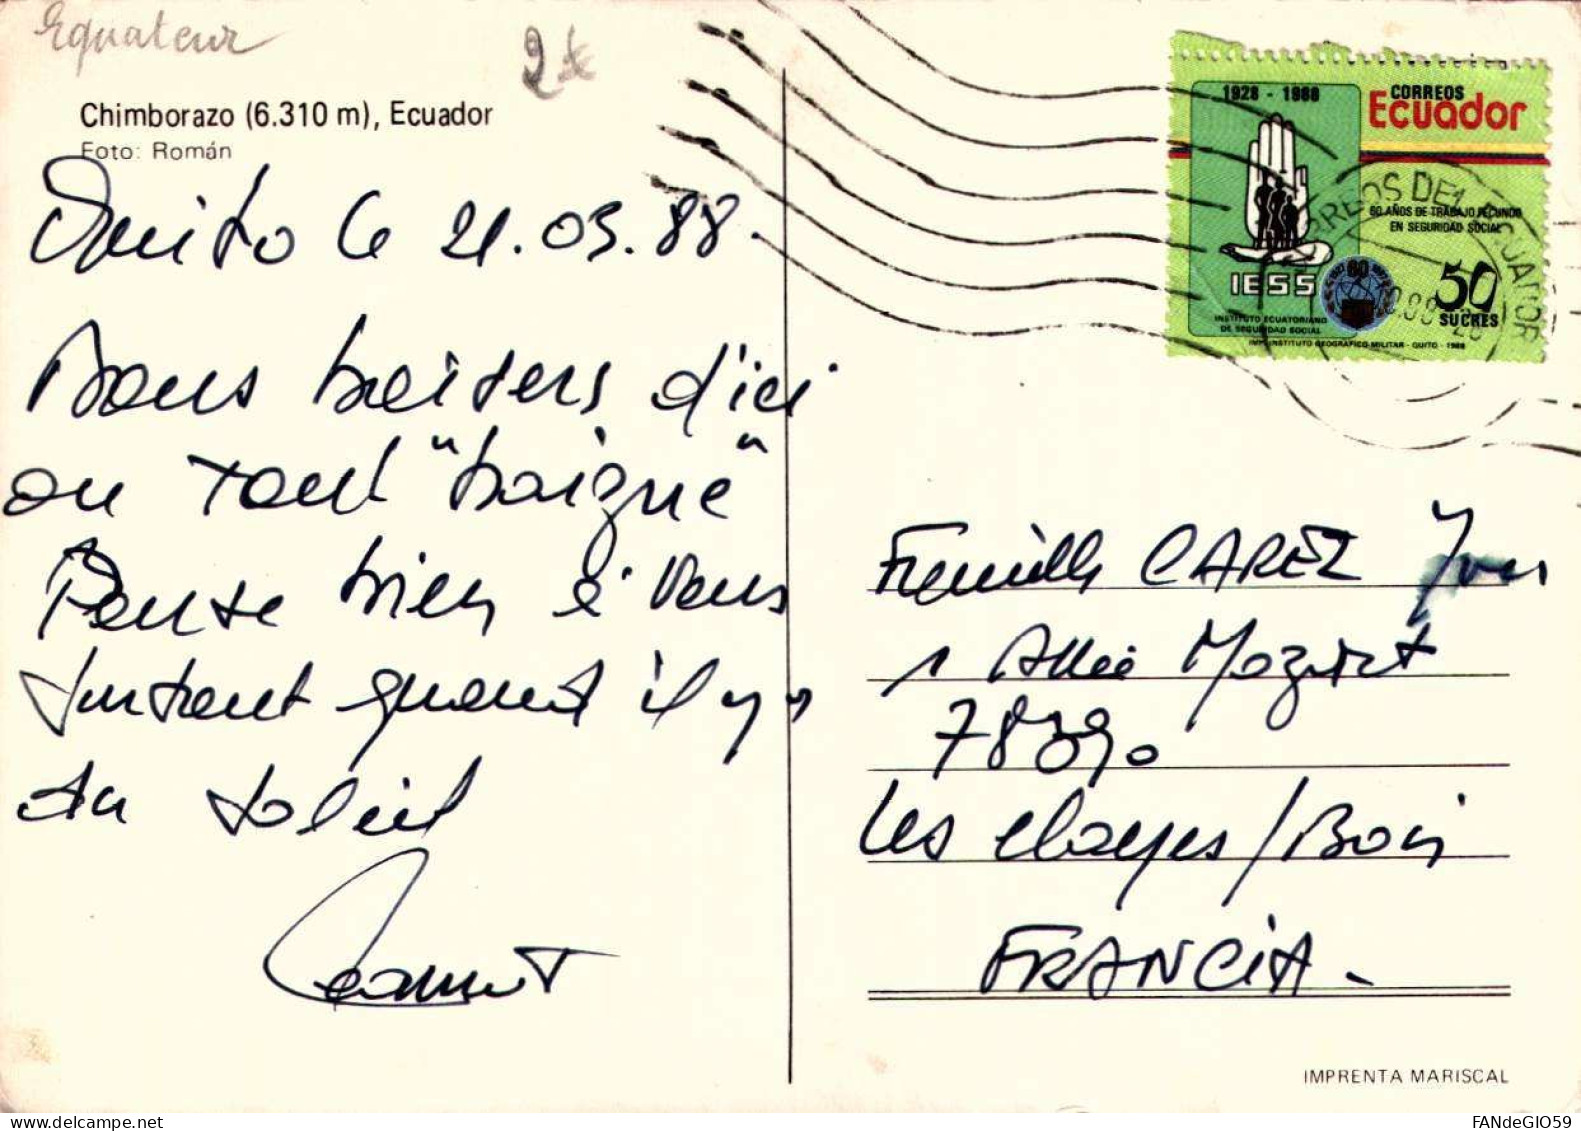 Equateur
2€
Chimborazo (6.310 m), Ecuador
Foto: Román
Quito le 21.05.88.
Bons baisers d'ici
ou tout "baigne"
Pense bien à vous
surtout quand il y a
du soleil
1928 - 1988
CORREOS
Ecuador
60 AÑOS DE TRABAJO FECUNDO
EN SEGURIDAD SOCIAL
IESS
INSTITUTO ECUATORIANO
DE SEGURIDAD SOCIAL
50
SUCRES
IMP. INSTITUTO GEOGRAFICO MILITAR - QUITO - 1988
Famille CAREZ Yvon
1 Allée Mozart
78390
Les Clayes/Bois
FRANCIA.
IMPRENTA MARISCAL
FANdeGIO59